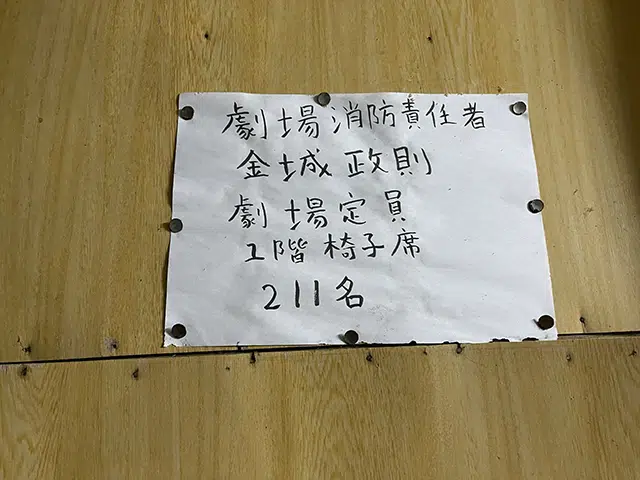 劇場消防責任者
金城政則
劇場定員
1階椅子席
211名